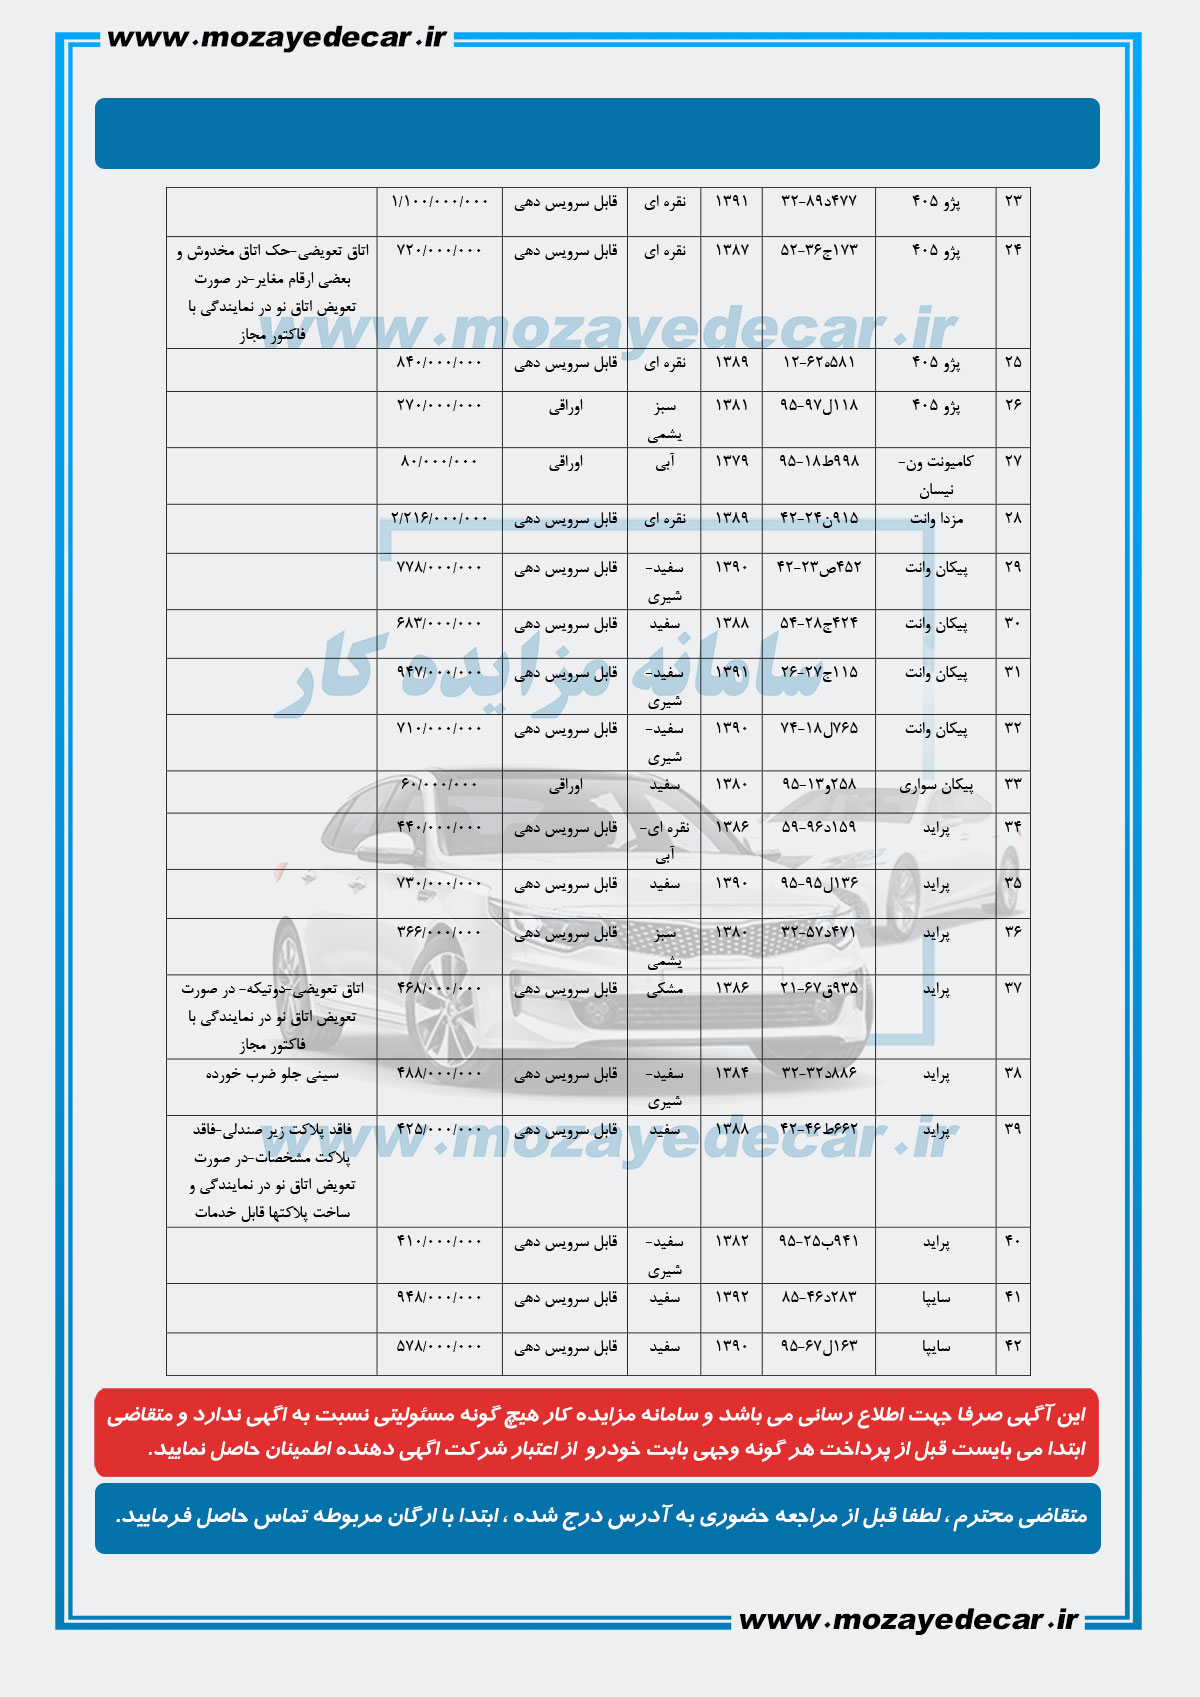 www.mozayedecar.ir
۲۳ پژو ۴۰۵ ۴۷۷د۸۹-۳۲ ۱۳۹۱ نقره ای قابل سرویس دهی ۱/۱۰۰/۰۰۰/۰۰۰
۲۴ پژو ۴۰۵ ۱۷۳ج۳۶-۵۲ ۱۳۸۷ نقره ای قابل سرویس دهی ۷۲۰/۰۰۰/۰۰۰ اتاق تعویضی-حک اتاق مخدوش و
بعضی ارقام مغایر-در صورت
تعویض اتاق نو در نمایندگی با
فاکتور مجاز
www.mozayedecar.ir
۲۵ پژو ۴۰۵ ۵۸۱ه۶۲-۱۲ ۱۳۸۹ نقره ای قابل سرویس دهی ۸۴۰/۰۰۰/۰۰۰
۲۶ پژو ۴۰۵ ۱۱۸ل۹۷-۹۵ ۱۳۸۱ سبز اوراقی ۲۷۰/۰۰۰/۰۰۰
یشمی
۲۷ کامیونت ون- ۹۹۸ط۱۸-۹۵ ۱۳۷۹ آبی اوراقی ۸۰/۰۰۰/۰۰۰
نیسان
۲۸ مزدا وانت ۹۱۵ن۲۴-۴۲ ۱۳۸۹ نقره ای قابل سرویس دهی ۲/۲۱۶/۰۰۰/۰۰۰
۲۹ پیکان وانت ۴۵۲ص۲۳-۴۲ ۱۳۹۰ سفید- قابل سرویس دهی ۷۷۸/۰۰۰/۰۰۰
شیری
۳۰ پیکان وانت ۴۲۴ج۲۸-۵۴ ۱۳۸۸ سفید قابل سرویس دهی ۶۸۳/۰۰۰/۰۰۰
سامانه مزایده کار
۳۱ پیکان وانت ۱۱۵ج۲۷-۲۶ ۱۳۹۱ سفید- قابل سرویس دهی ۹۴۷/۰۰۰/۰۰۰
شیری
۳۲ پیکان وانت ۷۶۵ل۱۸-۷۴ ۱۳۹۰ سفید- قابل سرویس دهی ۷۱۰/۰۰۰/۰۰۰
شیری
۳۳ پیکان سواری ۲۵۸و۱۳-۹۵ ۱۳۸۰ سفید اوراقی ۶۰/۰۰۰/۰۰۰
۳۴ پراید ۱۵۹د۹۶-۵۹ ۱۳۸۶ نقره ای- قابل سرویس دهی ۴۴۰/۰۰۰/۰۰۰
آبی
۳۵ پراید ۱۳۶ل۹۵-۹۵ ۱۳۹۰ سفید قابل سرویس دهی ۷۳۰/۰۰۰/۰۰۰
۳۶ پراید ۴۷۱د۵۷-۳۲ ۱۳۸۰ سبز قابل سرویس دهی ۳۶۶/۰۰۰/۰۰۰
یشمی
۳۷ پراید ۹۳۵ق۶۷-۲۱ ۱۳۸۶ مشکی قابل سرویس دهی ۴۶۸/۰۰۰/۰۰۰ اتاق تعویضی-دوتیکه- در صورت
تعویض اتاق نو در نمایندگی با
فاکتور مجاز
۳۸ پراید ۸۸۶د۳۲-۳۲ ۱۳۸۴ سفید- قابل سرویس دهی ۴۸۸/۰۰۰/۰۰۰ سینی جلو ضرب خورده
شیری
۳۹ پراید ۶۶۲ط۴۶-۴۲ ۱۳۸۸ سفید قابل سرویس دهی ۴۲۵/۰۰۰/۰۰۰ فاقد پلاکت زیر صندلی-فاقد
www.mozayedecar.ir
پلاکت مشخصات-در صورت
تعویض اتاق نو در نمایندگی و
ساخت پلاکتها قابل خدمات
۴۰ پراید ۹۴۱ب۲۵-۹۵ ۱۳۸۲ سفید- قابل سرویس دهی ۴۱۰/۰۰۰/۰۰۰
شیری
۴۱ سایپا ۲۸۳د۴۶-۸۵ ۱۳۹۲ سفید قابل سرویس دهی ۹۴۸/۰۰۰/۰۰۰
۴۲ سایپا ۱۶۳ل۶۷-۹۵ ۱۳۹۰ سفید قابل سرویس دهی ۵۷۸/۰۰۰/۰۰۰
این آگهی صرفا جهت اطلاع رسانی می باشد و سامانه مزایده کار هیچ گونه مسئولیتی نسبت به اگهی ندارد و متقاضی
ابتدا می بایست قبل از پرداخت هر گونه وجهی بابت خودرو از اعتبار شرکت اگهی دهنده اطمینان حاصل نمایید.
متقاضی محترم ، لطفا قبل از مراجعه حضوری به آدرس درج شده ، ابتدا با ارگان مربوطه تماس حاصل فرمایید.
www.mozayedecar.ir